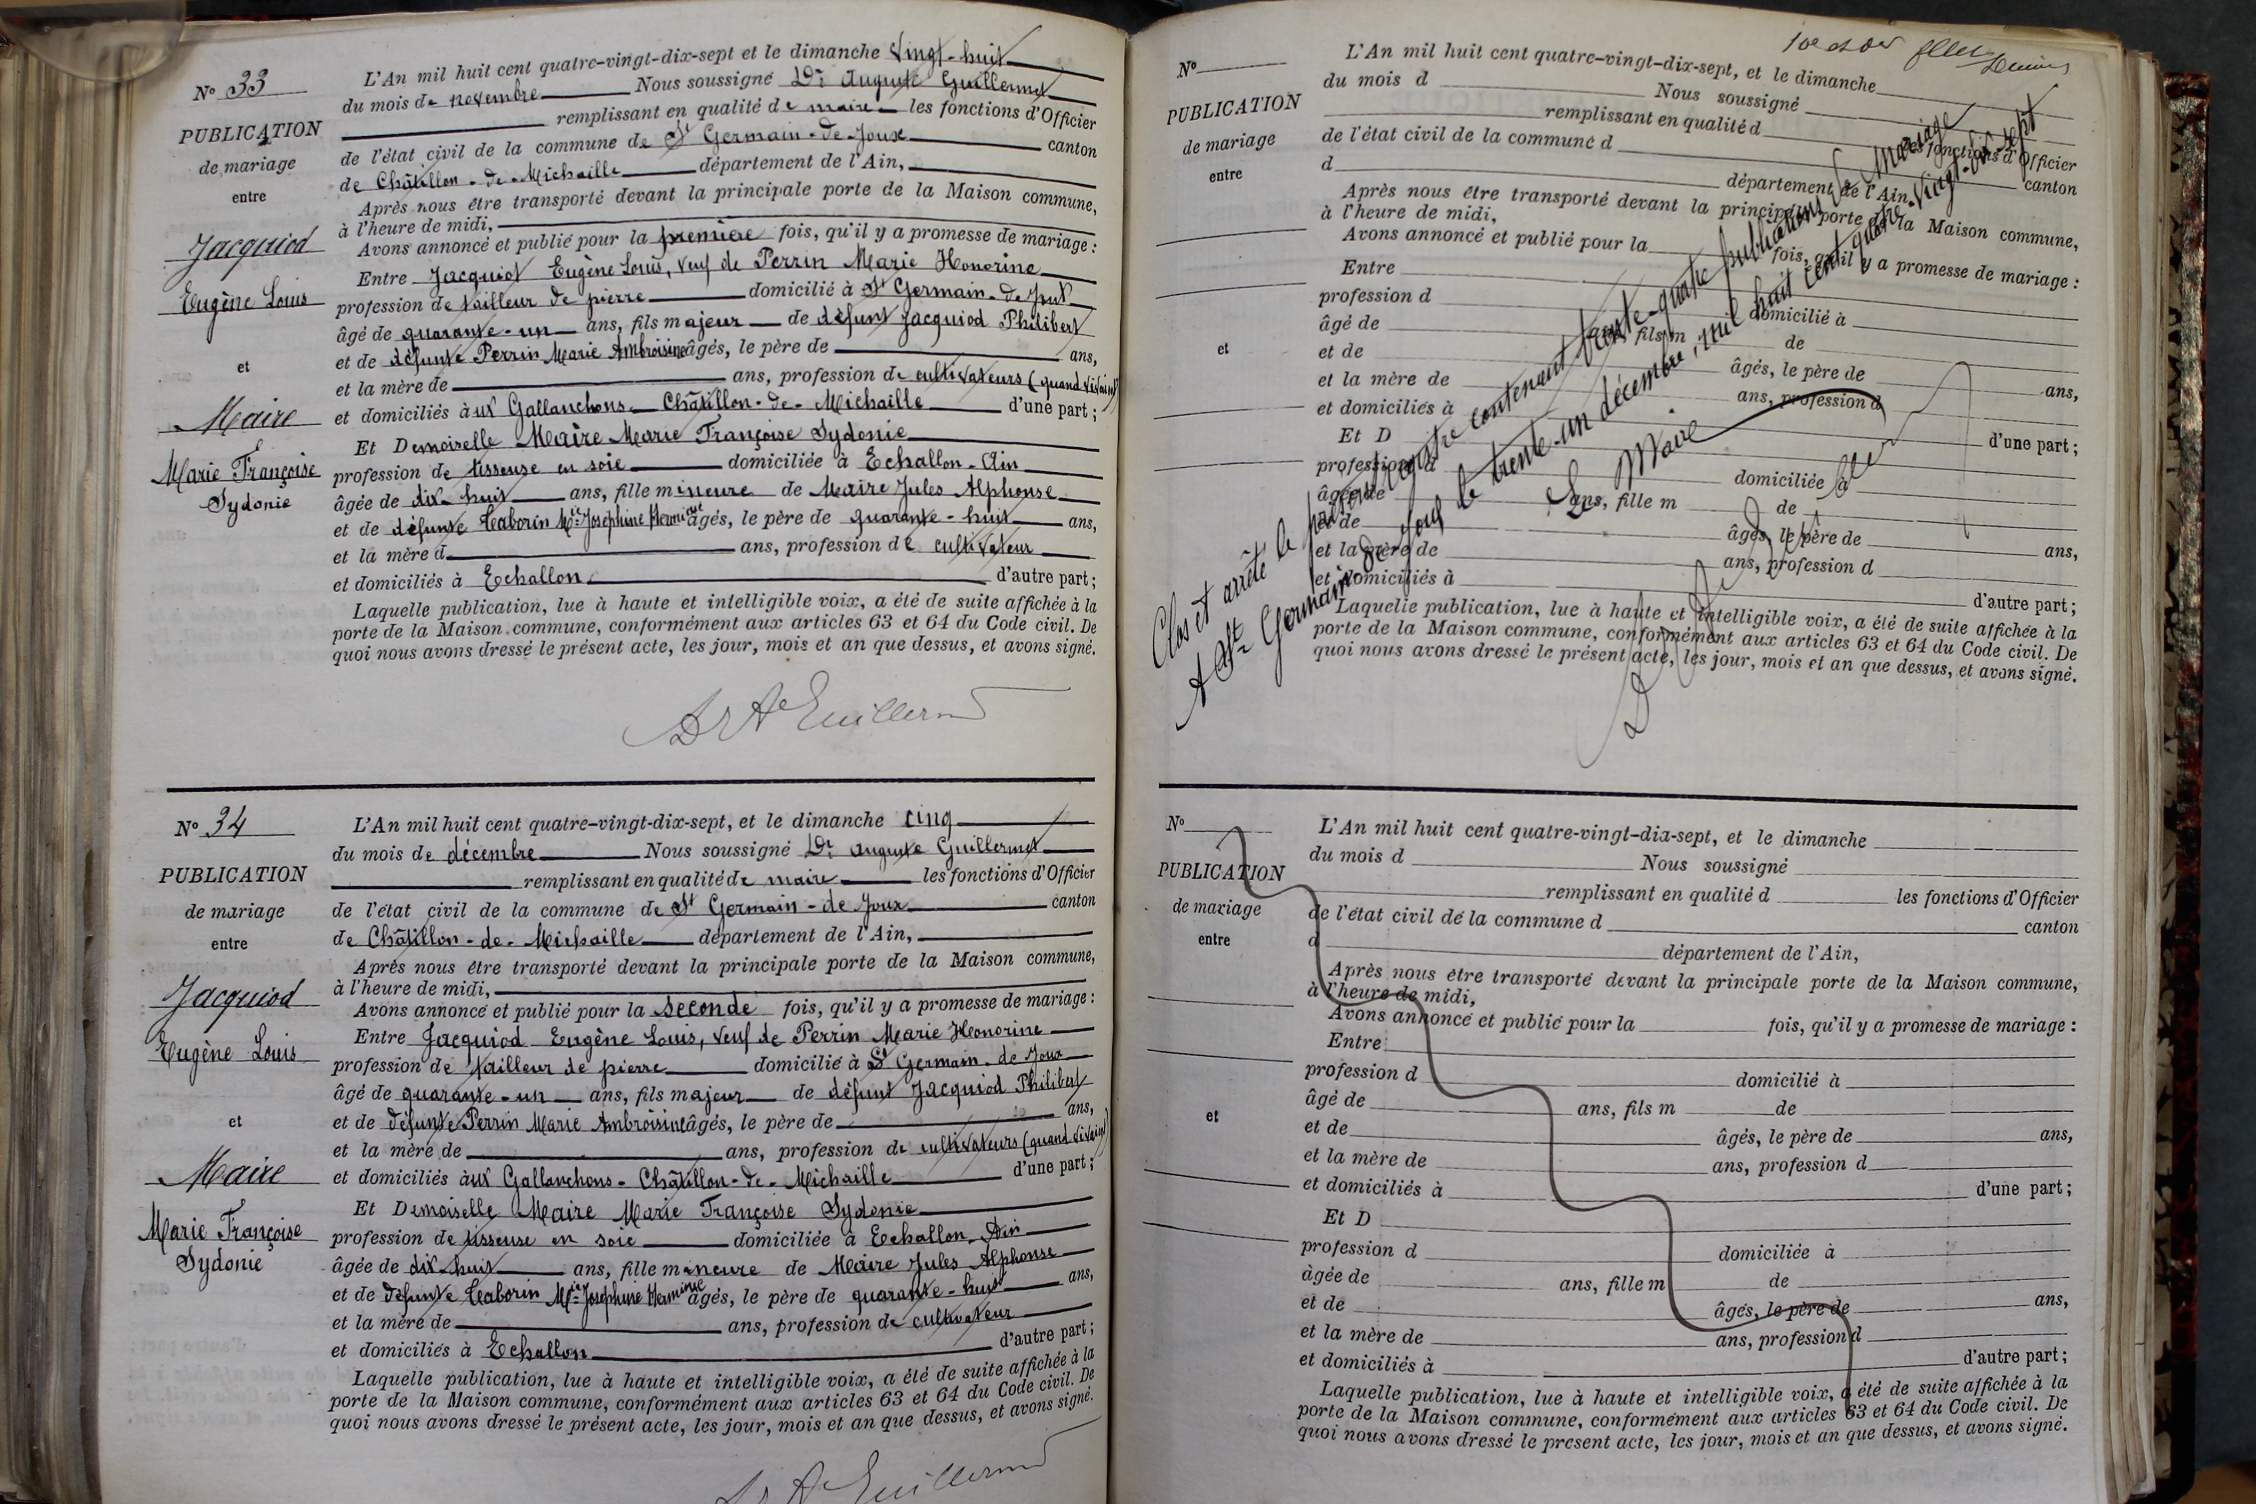 N° 33
PUBLICATION
de mariage
entre
Jacquiod
Eugène Louis
et
Maire
Marie Françoise
Sydonie
L'An mil huit cent quatre-vingt-dix-sept et le dimanche vingt-huit
du mois de novembre Nous soussigné Dr Auguste Guillermet
remplissant en qualité de maire les fonctions d'Officier
de l'état civil de la commune de St Germain-de-Joux canton
de Châtillon-de-Michaille département de l'Ain,
Après nous être transporté devant la principale porte de la Maison commune,
à l'heure de midi,
Avons annoncé et publié pour la première fois, qu'il y a promesse de mariage :
Entre Jacquiod Eugène Louis, veuf de Perrin Marie Honorine
profession de tailleur de pierre domicilié à St Germain-de-Joux
âgé de quarante-un ans, fils majeur de défunt Jacquiod Philibert
et de défunte Perrin Marie Ambroisine âgés, le père de ans,
et la mère de ans, profession de cultivateurs (quand vivaient)
et domiciliés aux Gallanchons-Châtillon-de-Michaille d'une part ;
Et Demoiselle Maire Marie Françoise Sydonie
profession de tisseuse en soie domiciliée à Echallon-Ain
âgée de dix-huit ans, fille mineure de Maire Jules Alphonse
et de défunte Taborin Mie Joséphine Herminie âgés, le père de quarante-huit ans,
et la mère d ans, profession de cultivateur
et domiciliés à Echallon d'autre part ;
Laquelle publication, lue à haute et intelligible voix, a été de suite affichée à la
porte de la Maison commune, conformément aux articles 63 et 64 du Code civil. De
quoi nous avons dressé le présent acte, les jour, mois et an que dessus, et avons signé.
Dr Ae Guillermet
N° 34
PUBLICATION
de mariage
entre
Jacquiod
Eugène Louis
et
Maire
Marie Françoise
Sydonie
L'An mil huit cent quatre-vingt-dix-sept, et le dimanche cinq
du mois de décembre Nous soussigné Dr Auguste Guillermet
remplissant en qualité de maire les fonctions d'Officier
de l'état civil de la commune de St Germain-de-Joux canton
de Châtillon-de-Michaille département de l'Ain,
Après nous être transporté devant la principale porte de la Maison commune,
à l'heure de midi,
Avons annoncé et publié pour la seconde fois, qu'il y a promesse de mariage :
Entre Jacquiod Eugène Louis, veuf de Perrin Marie Honorine
profession de tailleur de pierre domicilié à St Germain-de Joux
âgé de quarante-un ans, fils majeur de défunt Jacquiod Philibert
et de défunte Perrin Marie Ambroisine âgés, le père de ans,
et la mère de ans, profession de cultivateurs (quand vivaient)
et domiciliés aux Gallanchons-Châtillon-de-Michaille d'une part ;
Et Demoiselle Maire Marie Françoise Sydonie
profession de tisseuse en soie domiciliée à Echallon-Ain
âgée de dix-huit ans, fille mineure de Maire Jules Alphonse
et de défunte Taborin Mie Joséphine Herminie âgés, le père de quarante-huit ans,
et la mère de ans, profession de cultivateur
et domiciliés à Echallon d'autre part ;
Laquelle publication, lue à haute et intelligible voix, a été de suite affichée à la
porte de la Maison commune, conformément aux articles 63 et 64 du Code civil. De
quoi nous avons dressé le présent acte, les jour, mois et an que dessus, et avons signé.
Dr Ae Guillermet
N°
PUBLICATION
de mariage
entre
et
L'An mil huit cent quatre-vingt-dix-sept, et le dimanche
du mois d Nous soussigné
remplissant en qualité d les fonctions d'Officier
de l'état civil de la commune d canton
d département de l'Ain,
Après nous être transporté devant la principale porte de la Maison commune,
à l'heure de midi,
Avons annoncé et publié pour la fois, qu'il y a promesse de mariage :
Entre
profession d domicilié à
âgé de ans, fils m de
et de âgés, le père de ans,
et la mère de ans, profession d
et domiciliés à d'une part ;
Et D
profession d domiciliée à
âgée de ans, fille m de
et de âgés, le père de ans,
et la mère de ans, profession d
et domiciliés à d'autre part ;
Laquelle publication, lue à haute et intelligible voix, a été de suite affichée à la
porte de la Maison commune, conformément aux articles 63 et 64 du Code civil. De
quoi nous avons dressé le présent acte, les jour, mois et an que dessus, et avons signé.
Clos et arrêté le présent registre contenant trente-quatre publications de Mariage
A St Germain-de-Joux le trente-un décembre, mil huit cent quatre-vingt-dix-sept
Le Maire
N°
PUBLICATION
de mariage
entre
et
L'An mil huit cent quatre-vingt-dix-sept, et le dimanche
du mois d Nous soussigné
remplissant en qualité d les fonctions d'Officier
de l'état civil de la commune d canton
d département de l'Ain,
Après nous être transporté devant la principale porte de la Maison commune,
à l'heure de midi,
Avons annoncé et publié pour la fois, qu'il y a promesse de mariage :
Entre
profession d domicilié à
âgé de ans, fils m de
et de âgés, le père de ans,
et la mère de ans, profession d
et domiciliés à d'une part ;
Et D
profession d domiciliée à
âgée de ans, fille m de
et de âgés, le père de ans,
et la mère de ans, profession d
et domiciliés à d'autre part ;
Laquelle publication, lue à haute et intelligible voix, a été de suite affichée à la
porte de la Maison commune, conformément aux articles 63 et 64 du Code civil. De
quoi nous avons dressé le présent acte, les jour, mois et an que dessus, et avons signé.